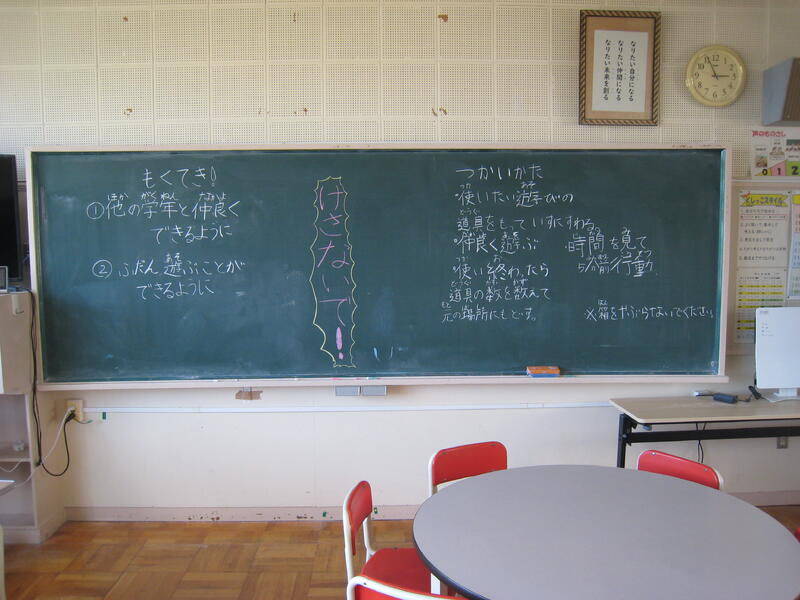 もくてき!
①他の学年と仲良く
できるように
②ふだん遊ぶことが
できるように
けさないで!
つかいかた
・使いたい遊びの
道具をもっていすにすわる
・仲良く遊ぶ
・使い終わったら
道具の数を数えて
元の場所にもどす。
・時間を見て
5分前行動
※箱をやぶらないでください。
なりたい自分になる
なりたい仲間になる
なりたい未来を創る
声のものさし
0 1 2